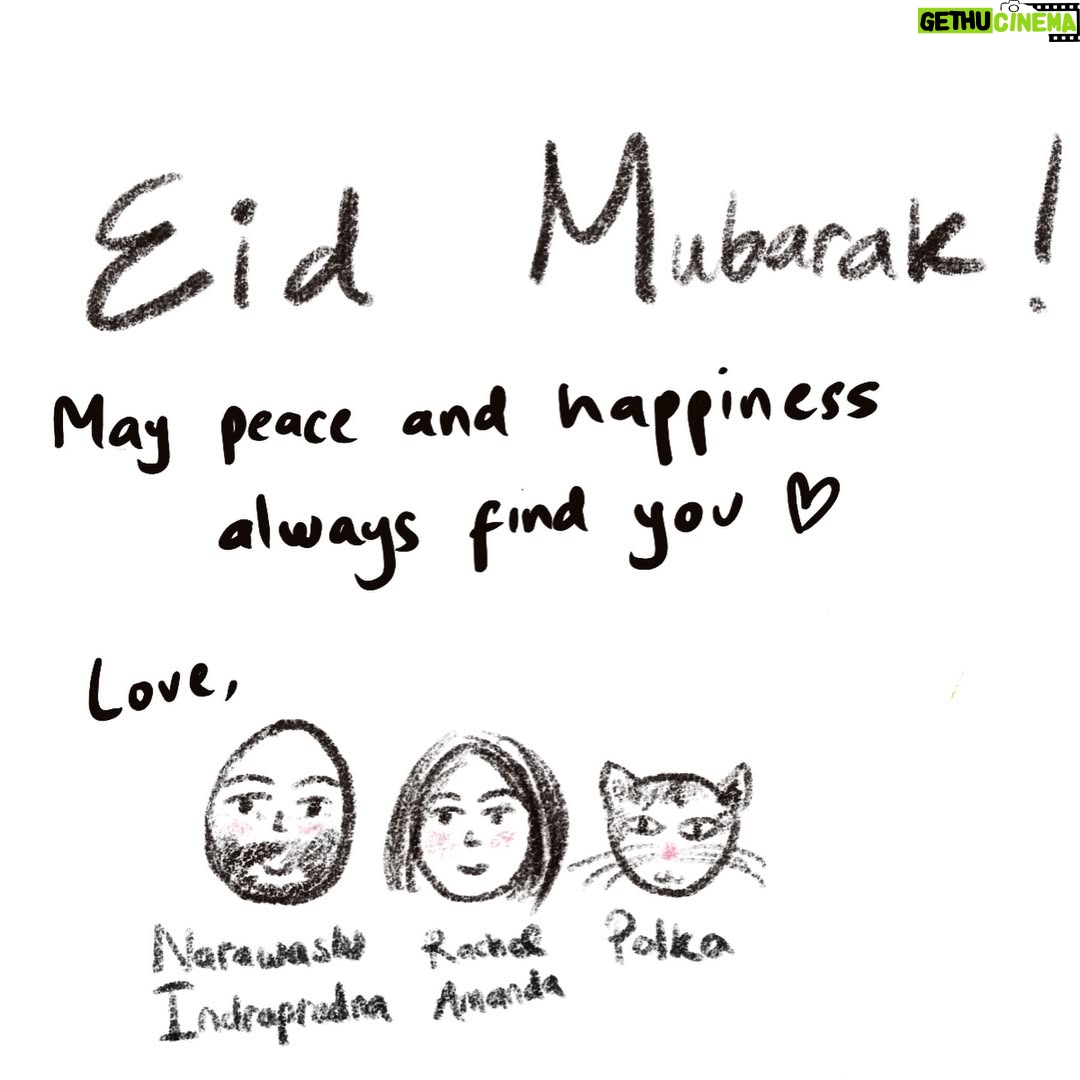 GETHUCINEMA
Eid Mubarak!
May peace and happiness
always find you ♡
Love,
Narawastu Rachel Polka
Indrapradna Amanda